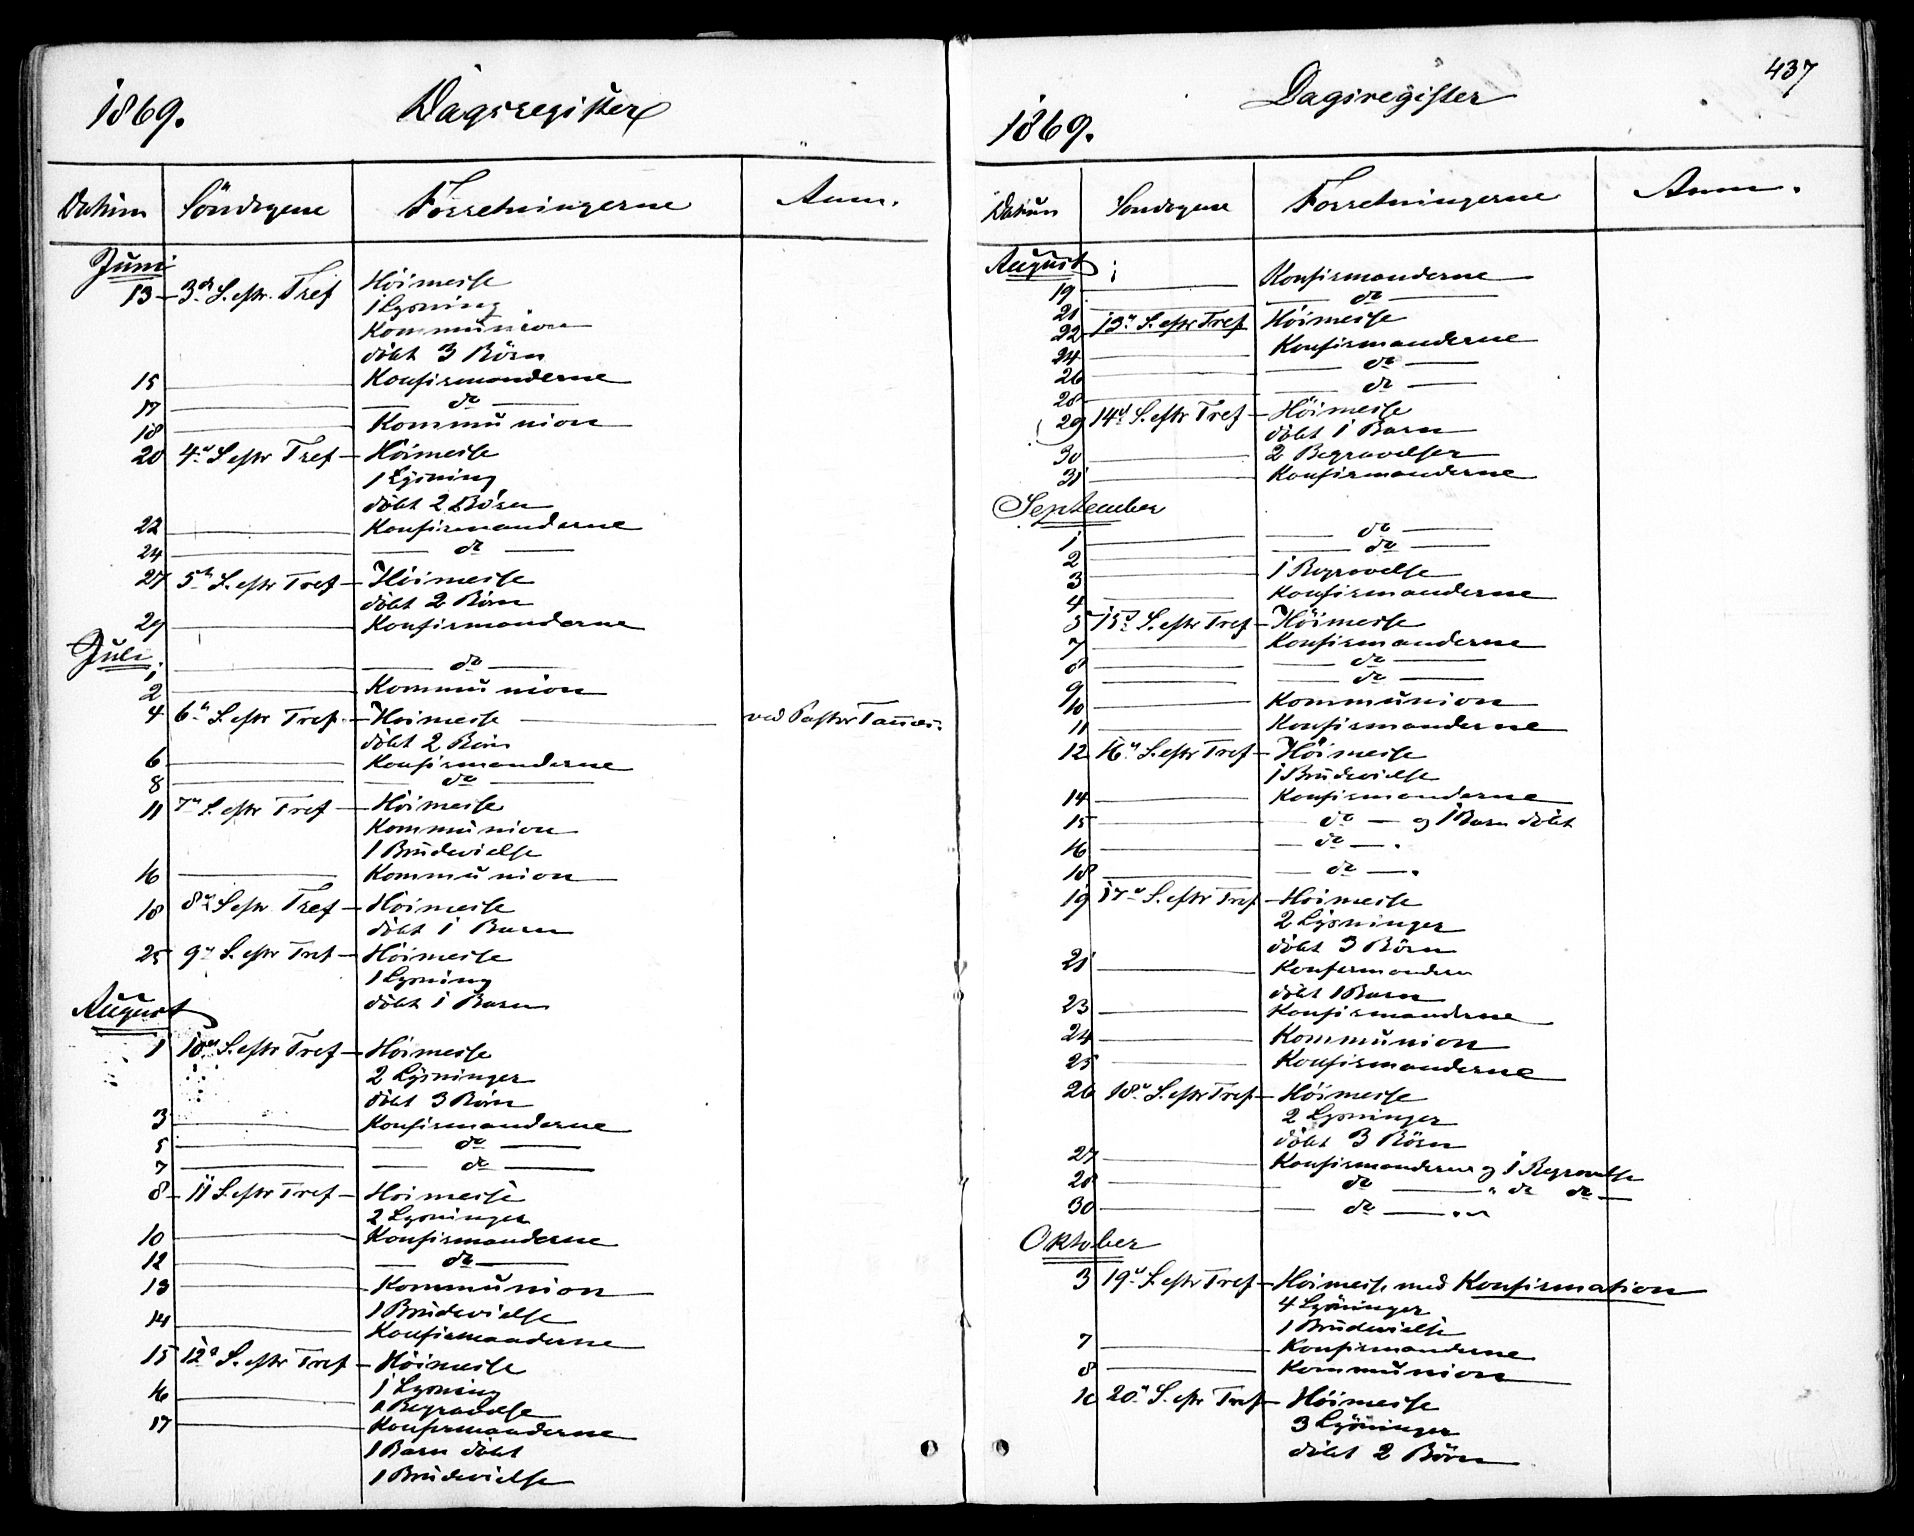 1869.
Dagsregister
Datum Söndagene Forretningerne Anm.
Juni
13 3de S. eftr. Tref Höimesse
1 Lysning
Kommunion
döbt 3 Börn
15 Konfirmanderne
17 do
18 Kommunion
20 4de S eftr Tref Höimesse
1 Lysning
döbt 2 Börn
22 Konfirmanderne
24 do
27 5te S. eftr Tref Höimesse
döbt 2 Börn
29 Konfirmanderne
Juli
1 do
2 Kommunion
4 6te S. eftr Tref. Höimesse ved Pastor
döbt 2 Börn
6 Konfirmanderne
8 do
11 7de S. eftr Tref Höimesse
Kommunion
1 Brudevielse
16 Kommunion
18 8de S eftr Tref Höimesse
döbt 1 Barn
25 9de S. eftr Tref Höimesse
1 Lysning
döbt 1 Barn
August
1 10de S. eftr Tref Höimesse
2 Lysninger
döbt 3 Börn
3 Konfirmanderne
5 do
7 do
8 11 S. eftr Tref Höimesse
2 Lysninger
10 Konfirmanderne
12 do
13 Kommunion
1 Brudevielse
14 Konfirmanderne
15 12te S. eftr Tref Höimesse
1 Lysning
16 1 Begravelse
17 Konfirmanderne
1 Barn döbt
1 Brudevielse
437
Dagsregister
1869.
Datum Söndagene Forretningerne Anm.
August
19 Konfirmanderne
21 do
22 13de S. eftr Tref Höimesse
24 Konfirmanderne
26 do
28 do
29 14de S. eftr Tref Höimesse
döbt 1 Barn
30 2 Begravelser
31 Konfirmanderne
September
1 do
2 do
3 1 Begravelse
4 Konfirmanderne
5 15de S. eftr Tref Höimesse
7 Konfirmanderne
8 do
9 do
10 Kommunion
11 Konfirmanderne
12 16de S. eftr Tref Höimesse
1 Brudevielse
14 Konfirmanderne
15 do og 1 Barn döbt
16 do
18 do
19 17de S. eftr Tref Höimesse
2 Lysninger
döbt 3 Börn
21 Konfirmandern
döbt 1 Barn
23 Konfirmanderne
24 Kommunion
25 Konfirmanderne
26 18de S. eftr Tref Höimesse
2 Lysninger
döbt 3 Börn
27 Konfirmanderne og 1 Begravelse
28 do " do do
30 do
Oktober
3 19de S. eftr Tref Höimesse med Konfirmation
4 Lysninger
1 Brudevielse
7 Konfirmanderne
8 Kommunion
10 20de S. eftr Tref Höimesse
3 Lysninger
döbt 2 Börn